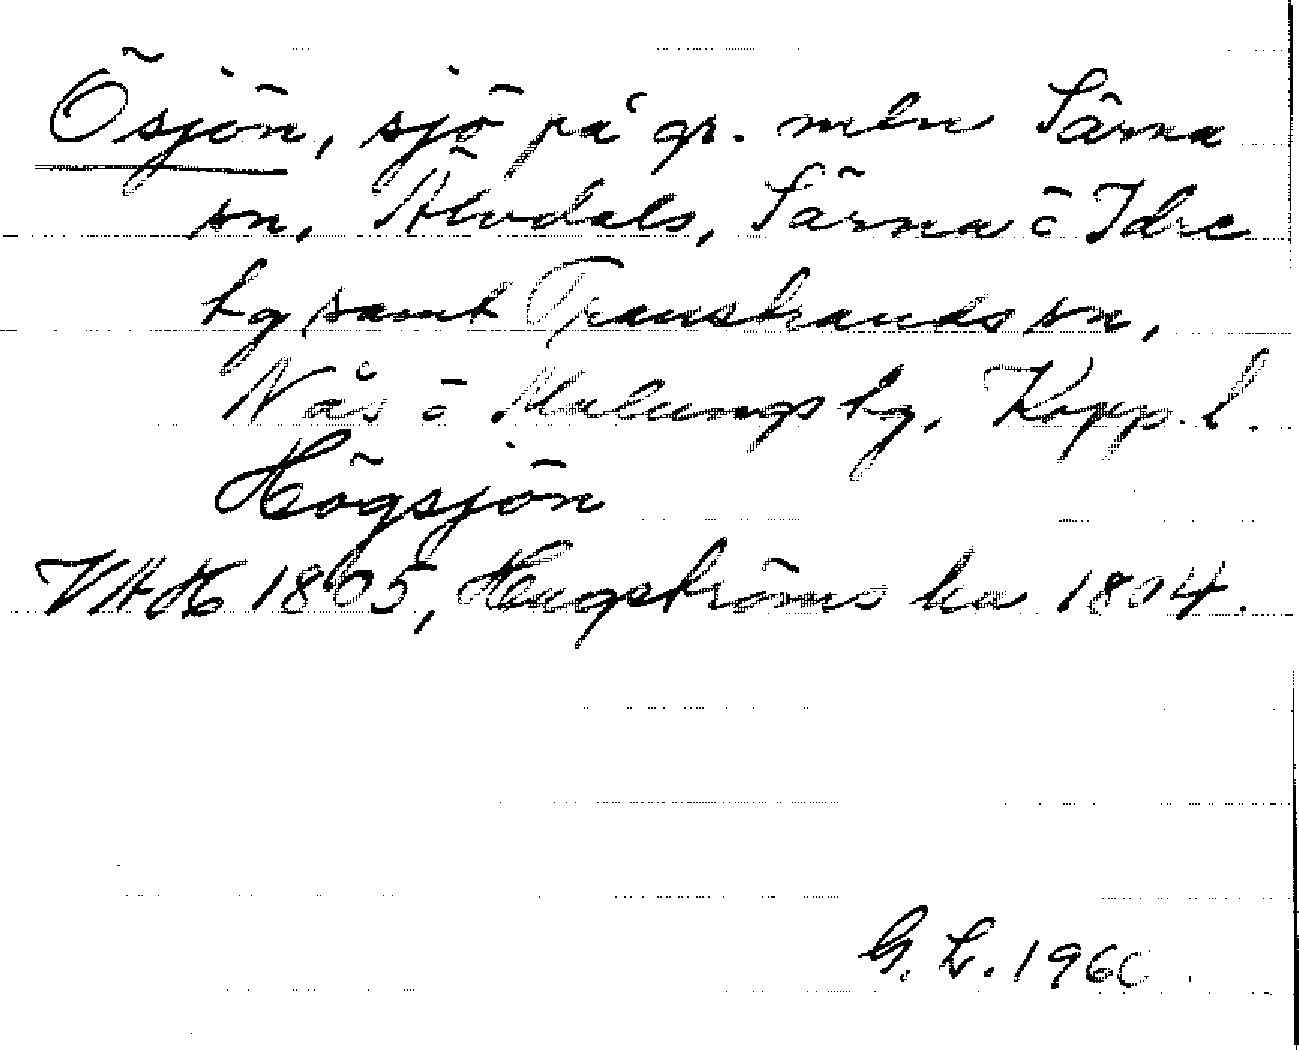 Ösjön, sjö på gr. mln Särna
sn, Älvdals, Särna o Idre
tg samt Transtrands sn,
Nås o Malungs tg, Kopp. l.
Högsjön
VAH 1805, Hagströms ka 1804.
G. L. 1960.